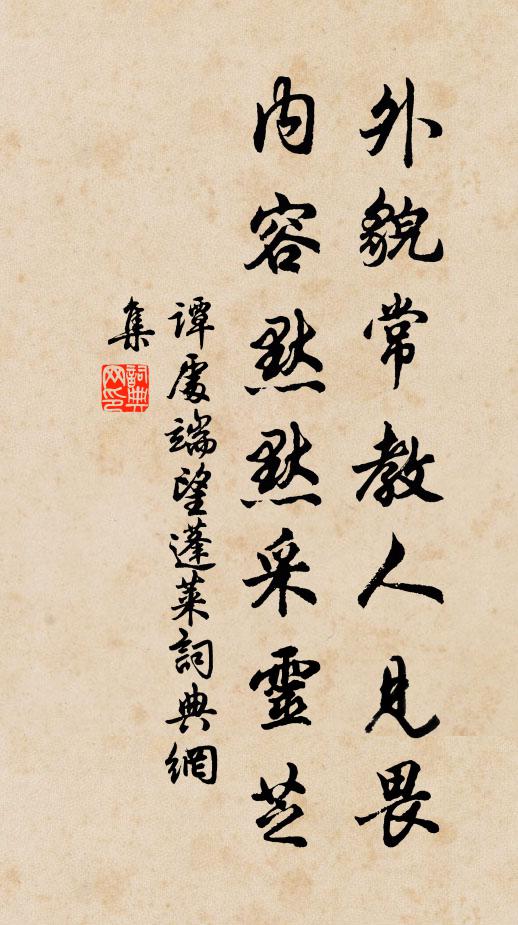 外貌常教人見畏
內容默默采靈芝
譚處端望蓬萊詞典網
集
詞典
網印